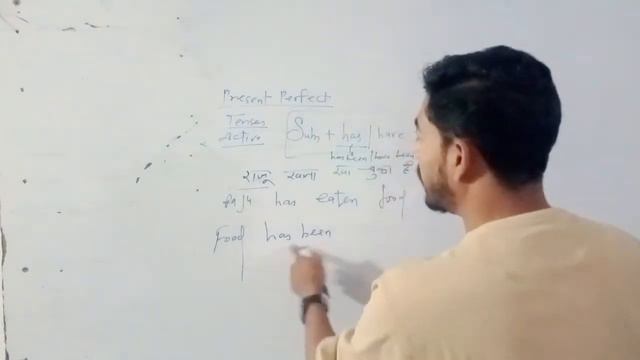 Present Perfect
Tenses
Active Sub + has / have
has been / have been
राजू खाना खा चुका है
has eaten food
Food has been